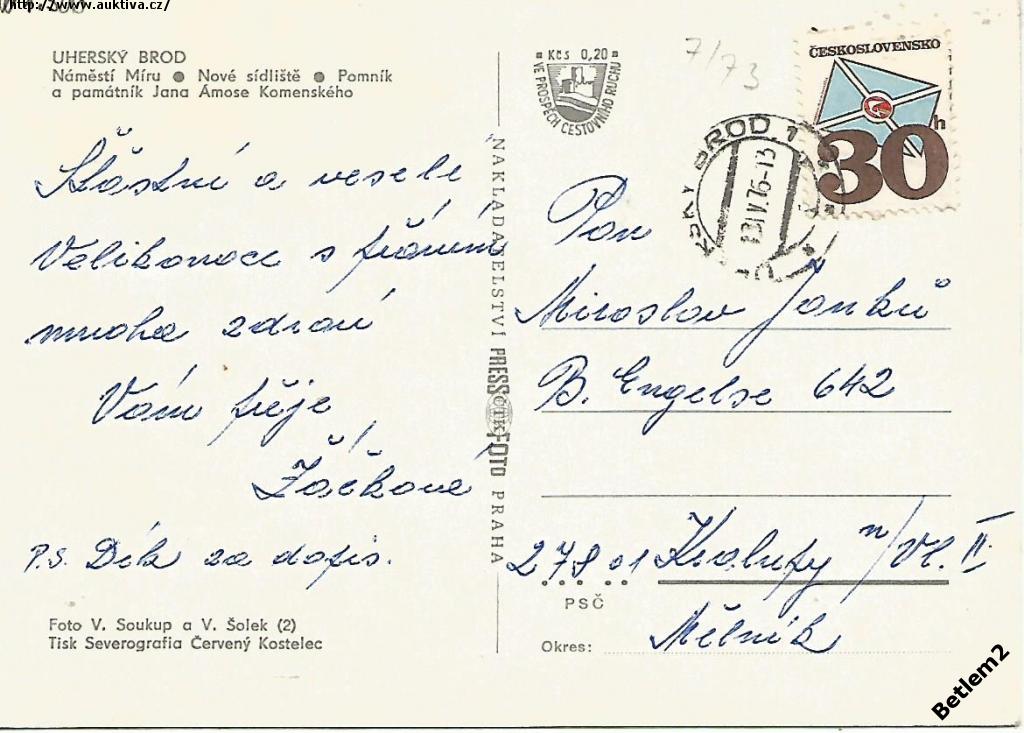 http://www.auktiva.cz/
UHERSKÝ BROD
Náměstí Míru ● Nové sídliště ● Pomník
a památník Jana Ámose Komenského
Šťastné a veselé
Velikonoce s přáním
mnoha zdraví
Vám přeje
Žáčkové
P.S. Dík za dopis.
Foto V. Soukup a V. Šolek (2)
Tisk Severografia Červený Kostelec
NAKLADATELSTVÍ PRESSFOTO PRAHA
ČTK
Kčs 0,20
VE PROSPĚCH CESTOVNÍHO RUCHU
7/73
ČESKOSLOVENSKO
30h
UHERSKÝ BROD 1
13.IV.76-13
Pan
Miroslav Janků
B. Engelse 642
278 01 Kralupy n/Vl. II.
PSČ
Mělník
Okres:
Betlem2